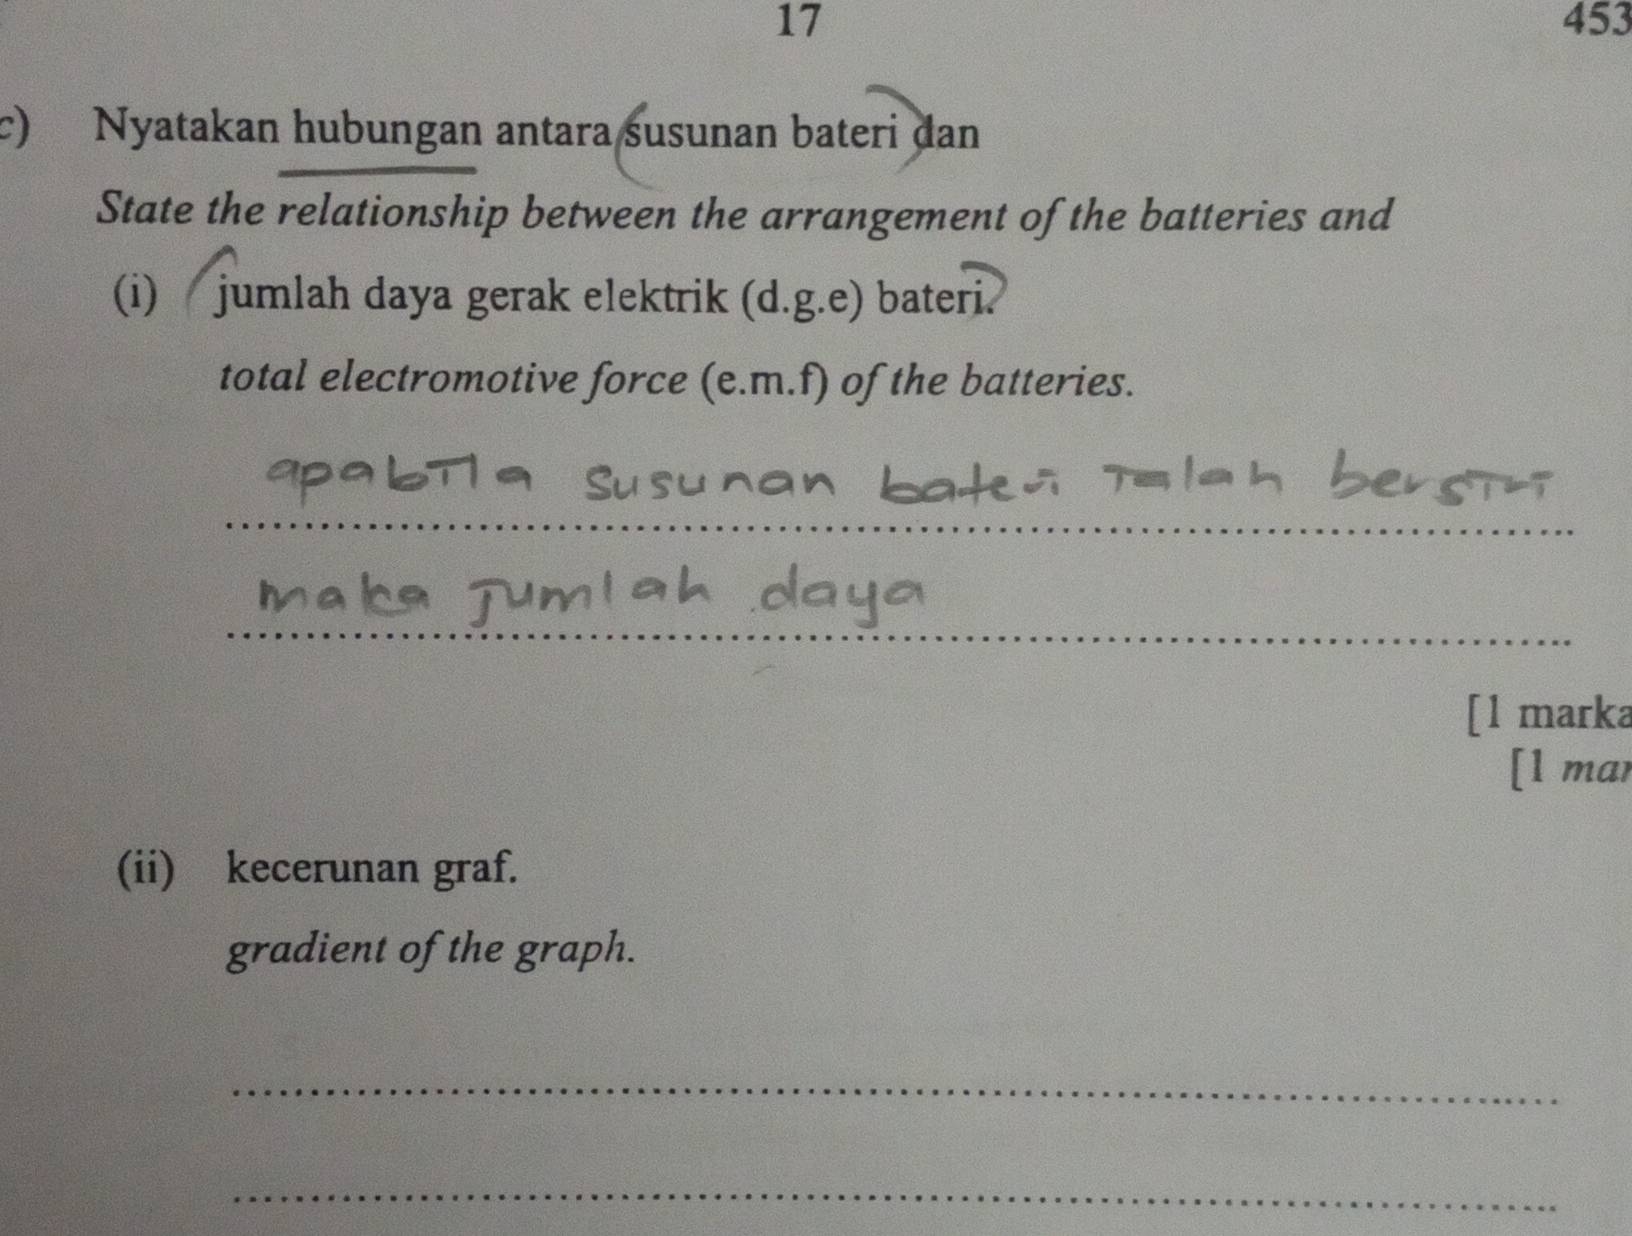 17
453
c) Nyatakan hubungan antara susunan bateri dan
State the relationship between the arrangement of the batteries and
(i) jumlah daya gerak elektrik (d.g.e) bateri.
total electromotive force (e.m.f) of the batteries.
apabila susunan bateri ialah bersiri
maka jumlah daya
[1 marka
[1 mar
(ii) kecerunan graf.
gradient of the graph.